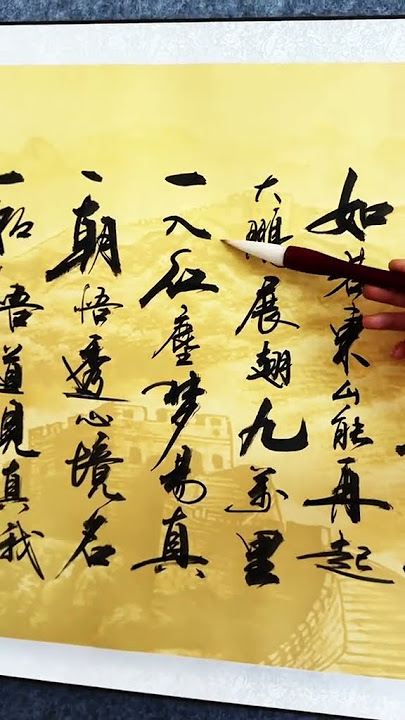 如若東山能再起
大鵬展翅九萬里
一入紅塵夢易真
一朝悟透心境名
一朝悟道見真我